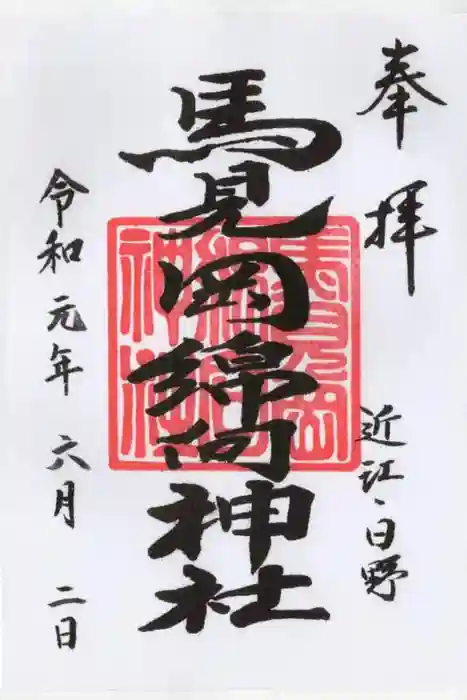 奉拝
近江・日野
馬見岡綿向神社
馬見岡
綿向
神社
令和元年六月二日